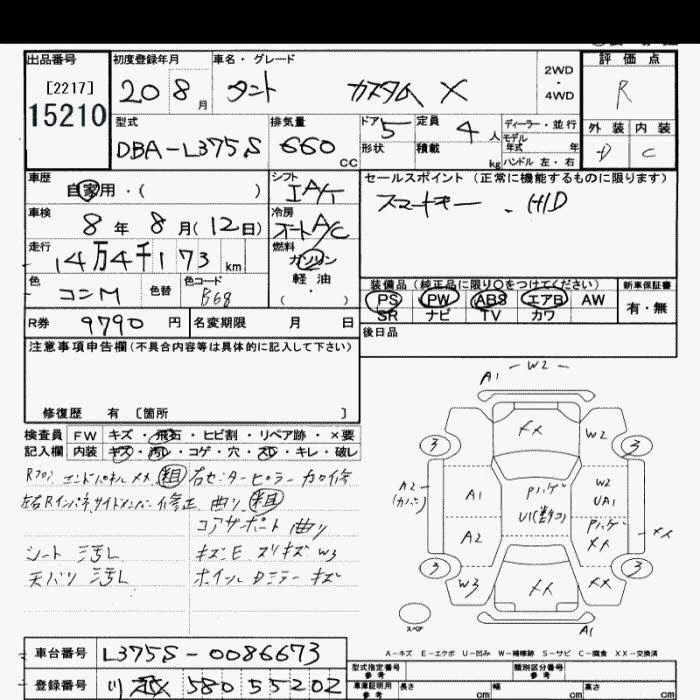 出品番号
[2217]
15210
初度登録年月
20 8月
車名・グレード
タント カスタム X
2WD
・
4WD
評価点
R
型式
DBA-L375S
排気量
660 CC
ドア 5
形状
定員 4人
積載 kg
ディーラー・並行
モデル
年式 年
ハンドル 左・右
外装 内装
D C
車歴
自家用・( )
シフト
IAT
セールスポイント (正常に機能するものに限ります)
スマートキー . HID
車検
8年 8月(12日)
冷房
オートA/C
走行
14万4千173km
燃料
ガソリン
軽油
( ・ )
色
コンM
色替
色コード
B68
装備品(純正品に限り○をつけてください)
新車保証書
PS PW ABS エアB AW
SR ナビ TV カワ
有・無
R券 9790 円
名変期限 月 日
後日品
注意事項申告欄(不具合内容等は具体的に記入して下さい)
修復歴 有 [箇所 ]
検査員
記入欄
FW キズ・飛石・ヒビ割・リペア跡・×要
内装 キズ・汚レ・コゲ・穴・スレ・キレ・破レ
Rフロア エンドパネル メメ 粗 右センターピラー カロ修
左右Rインパネ、サイドメンバー 修正、曲り 粗
コアサポート 曲り
シート 汚レ キズE スリキズ W3
天バリ 汚レ ホイール Dミラー キズ
A1 - W2 -
メメ
W2
3 3
A2
A1
W2
UA1
A2
メメ
メメ
3 3
W3
メメ
メメ
スペア
A1
A-キズ E-エクボ U-凹み W-補修跡 S-サビ C-腐食 XX-交換済
車台番号 L375S-0086673
登録番号 580 5 5202
型式指定番号
参考
類別区分番号
参考
車庫証明用
参考
長さ cm 幅 cm 高さ cm